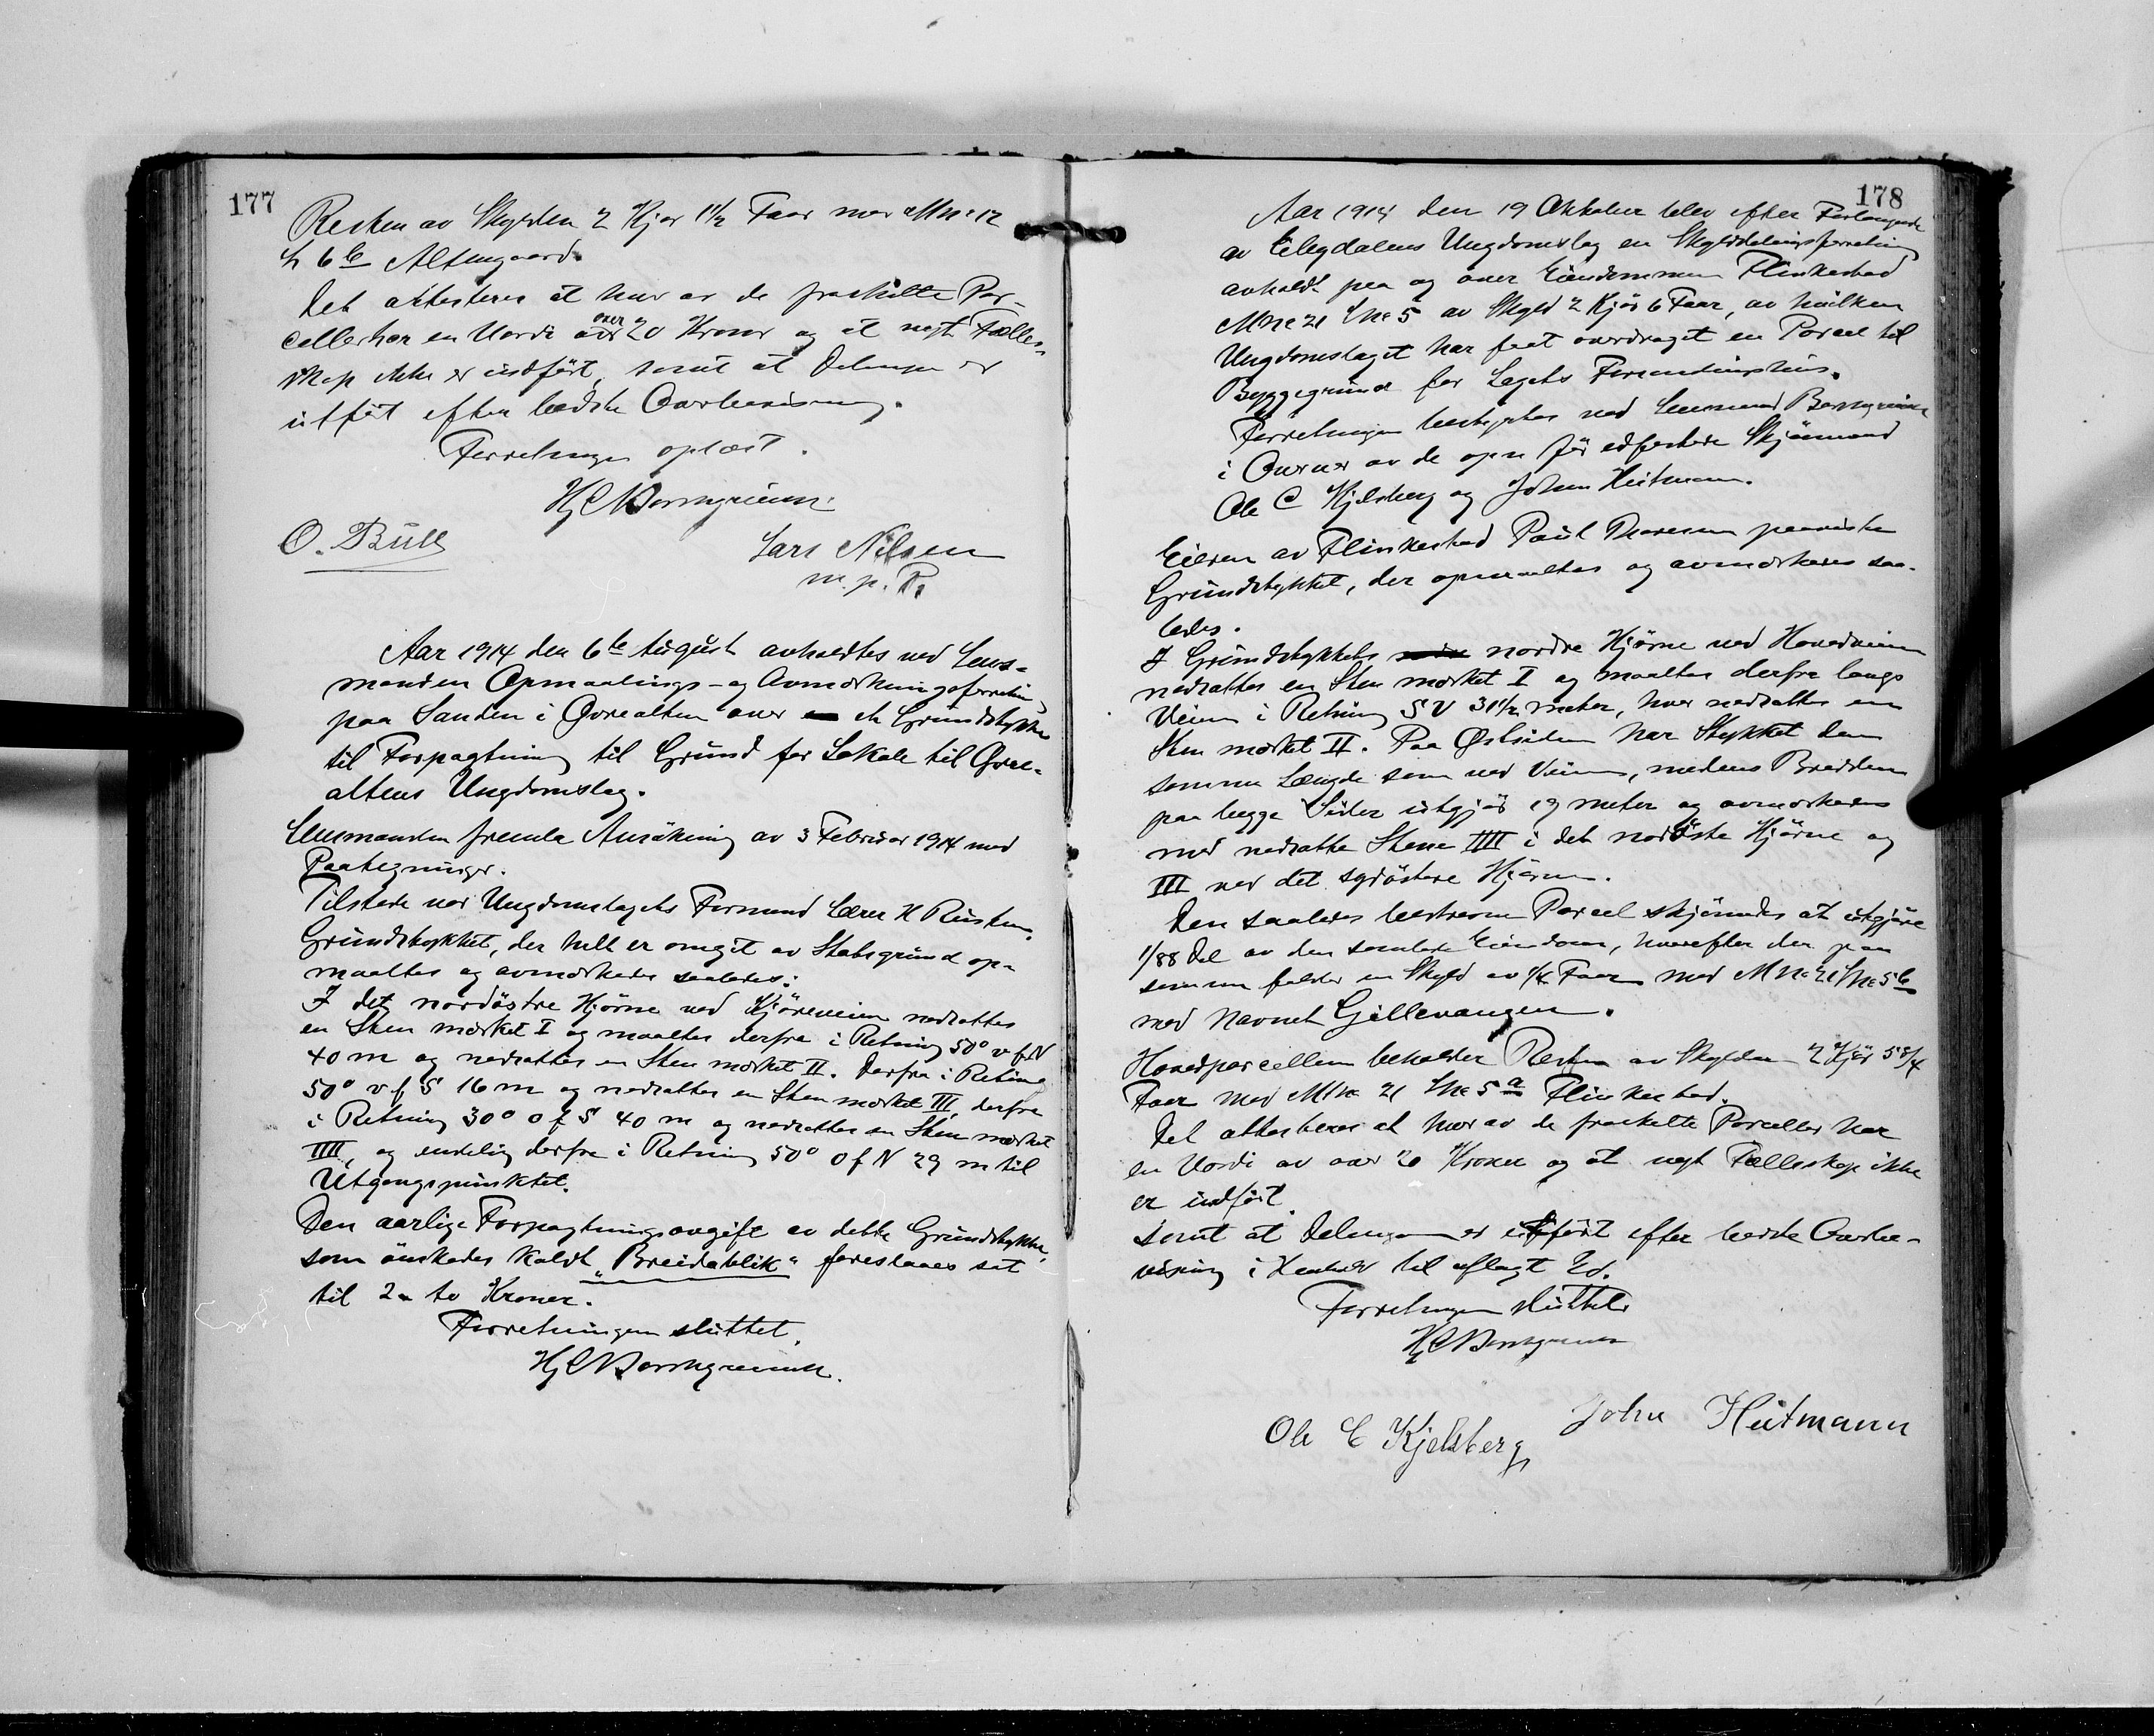 177
Resten av Skylden 2 Kjør 1 1/2 Faar med Mno 12
L 6 b Altengaard.
Det attesteres at hver av de fraskilte Par-
celler har en Værdi over 20 Kroner og at nyt Fælles-
skap ikke er indført, samt at Delingen er
utført efter bedste Overbevisning.
Forretningen oplæst.
Hj C Borchgrevink
O. Bull
Lars Nilsen
m. p. P.
Aar 1914 den 6te August avholdtes ved Lens-
manden Opmaalings- og Avmerkningsforretning
paa Sanden i Øvrealten over et Grundstykke
til Forpagtning til Grund for Lokale til Øvre-
altens Ungdomslag.
Lensmanden fremla Ansökning av 3 Februar 1914 med
Paategninger.
Tilstede var Ungdomslagets Formand Lærer H Rusten.
Grundstykket, der helt er omgit av Statsgrund op-
maaltes og avmærkedes saaledes:
I det nordöstre Hjörne ved Kjöreveien nedsattes
en Sten mærket I og maaltes derfra i Retning 50° v f N
40 m og nedsattes en Sten mærket II. Derfra i Retning
50° v f S 16 m og nedsattes en Sten mærket III, derfra
i Retning 30° o f S 40 m og nedsattes en Sten mærket
IIII, og endelig derfra i Retning 50° o f N 29 m til
Utgangspunktet.
Den aarlige Forpagtningsavgift av dette Grundstykke,
som önskedes kaldt "Breidablik" foreslaaes sat
til 2 - to Kroner.
Forretningen sluttet.
Hj C Borchgrevink.
178
Aar 1914 den 19 Oktober blev efter Forlangende
av Elvedalens Ungdomslag en Skylddelingsforretning
avholdt paa og over Eiendommen Flinkestad
Mno 21 Lno 5 av Skyld 2 Kjör 6 Faar, av hvilken
Ungdomslaget har faat overdraget en Parcel til
Byggegrund for Lagets Forsamlingshus.
Forretningen bestyrtes ved Lensmand Borchgrevink
i Overvær av de opn för edfæstede Skjönsmænd
Ole C Kjelsberg og Johan Heitmann.
Eieren av Flinkestad Paul Thoresen paaviste
Grundstykket, der opmaaltes og avmærkedes saa-
ledes.
I Grundstykkets nordre Hjörne ved Hovedveien
nedsattes en Sten mærket I og maaltes derfra langs
Veien i Retning S V 31 1/2 meter, hvor nedsattes en
Sten mærket II. Paa Østsiden har Stykket den
samme Længde som ved Veien, medens Bredden
paa begge Sider utgjör 19 meter og avmærkedes
med nedsatte Stene IIII i det nordöste Hjörne og
III ved det sydöstre Hjörne.
Den saaledes beskrevne Parcel skjönnedes at utgjöre
1/88 Del av den samlede Eiendom, hvorefter der paa
samme falder en Skyld av 1/4 Faar med Mno 21 Lno 5 b
med Navnet Gillevangen.
Hovedparcellen beholder Resten av Skylden 2 Kjör 5 3/4
Faar med Mno 21 Lno 5 a Flinkestad.
Det attesteres at hver av de fraskilte Parceller har
en Værdi av over 20 Kroner og at nyt Fælleskap ikke
er indfört
samt at Delingen er utfört efter bedste Overbe-
visning i Henhold til aflagt Ed.
Forretningen sluttet
Hj C Borchgrevink
Ole C Kjelsberg
John Heitmann